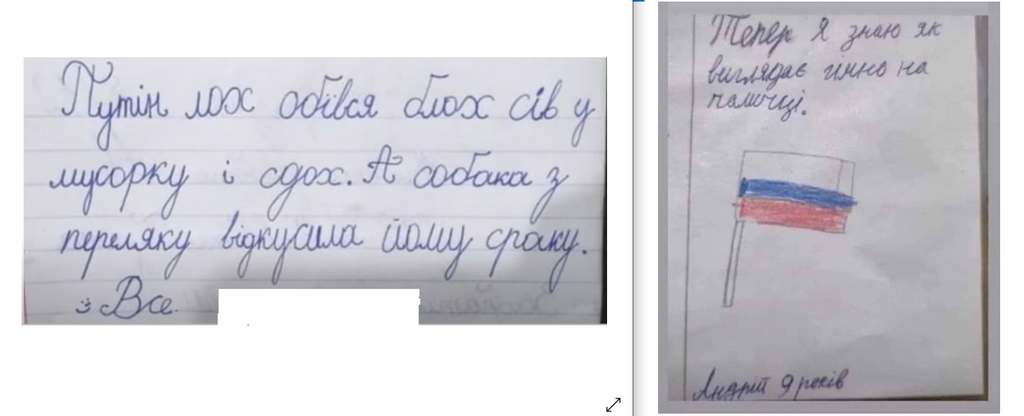 Путін лох обївся блох сів у
мусорку і сдох. А собака з
переляку відкусила йому сраку.
Все.
Тепер я знаю як
виглядає гімно на
палочці.
Андрій 9 років